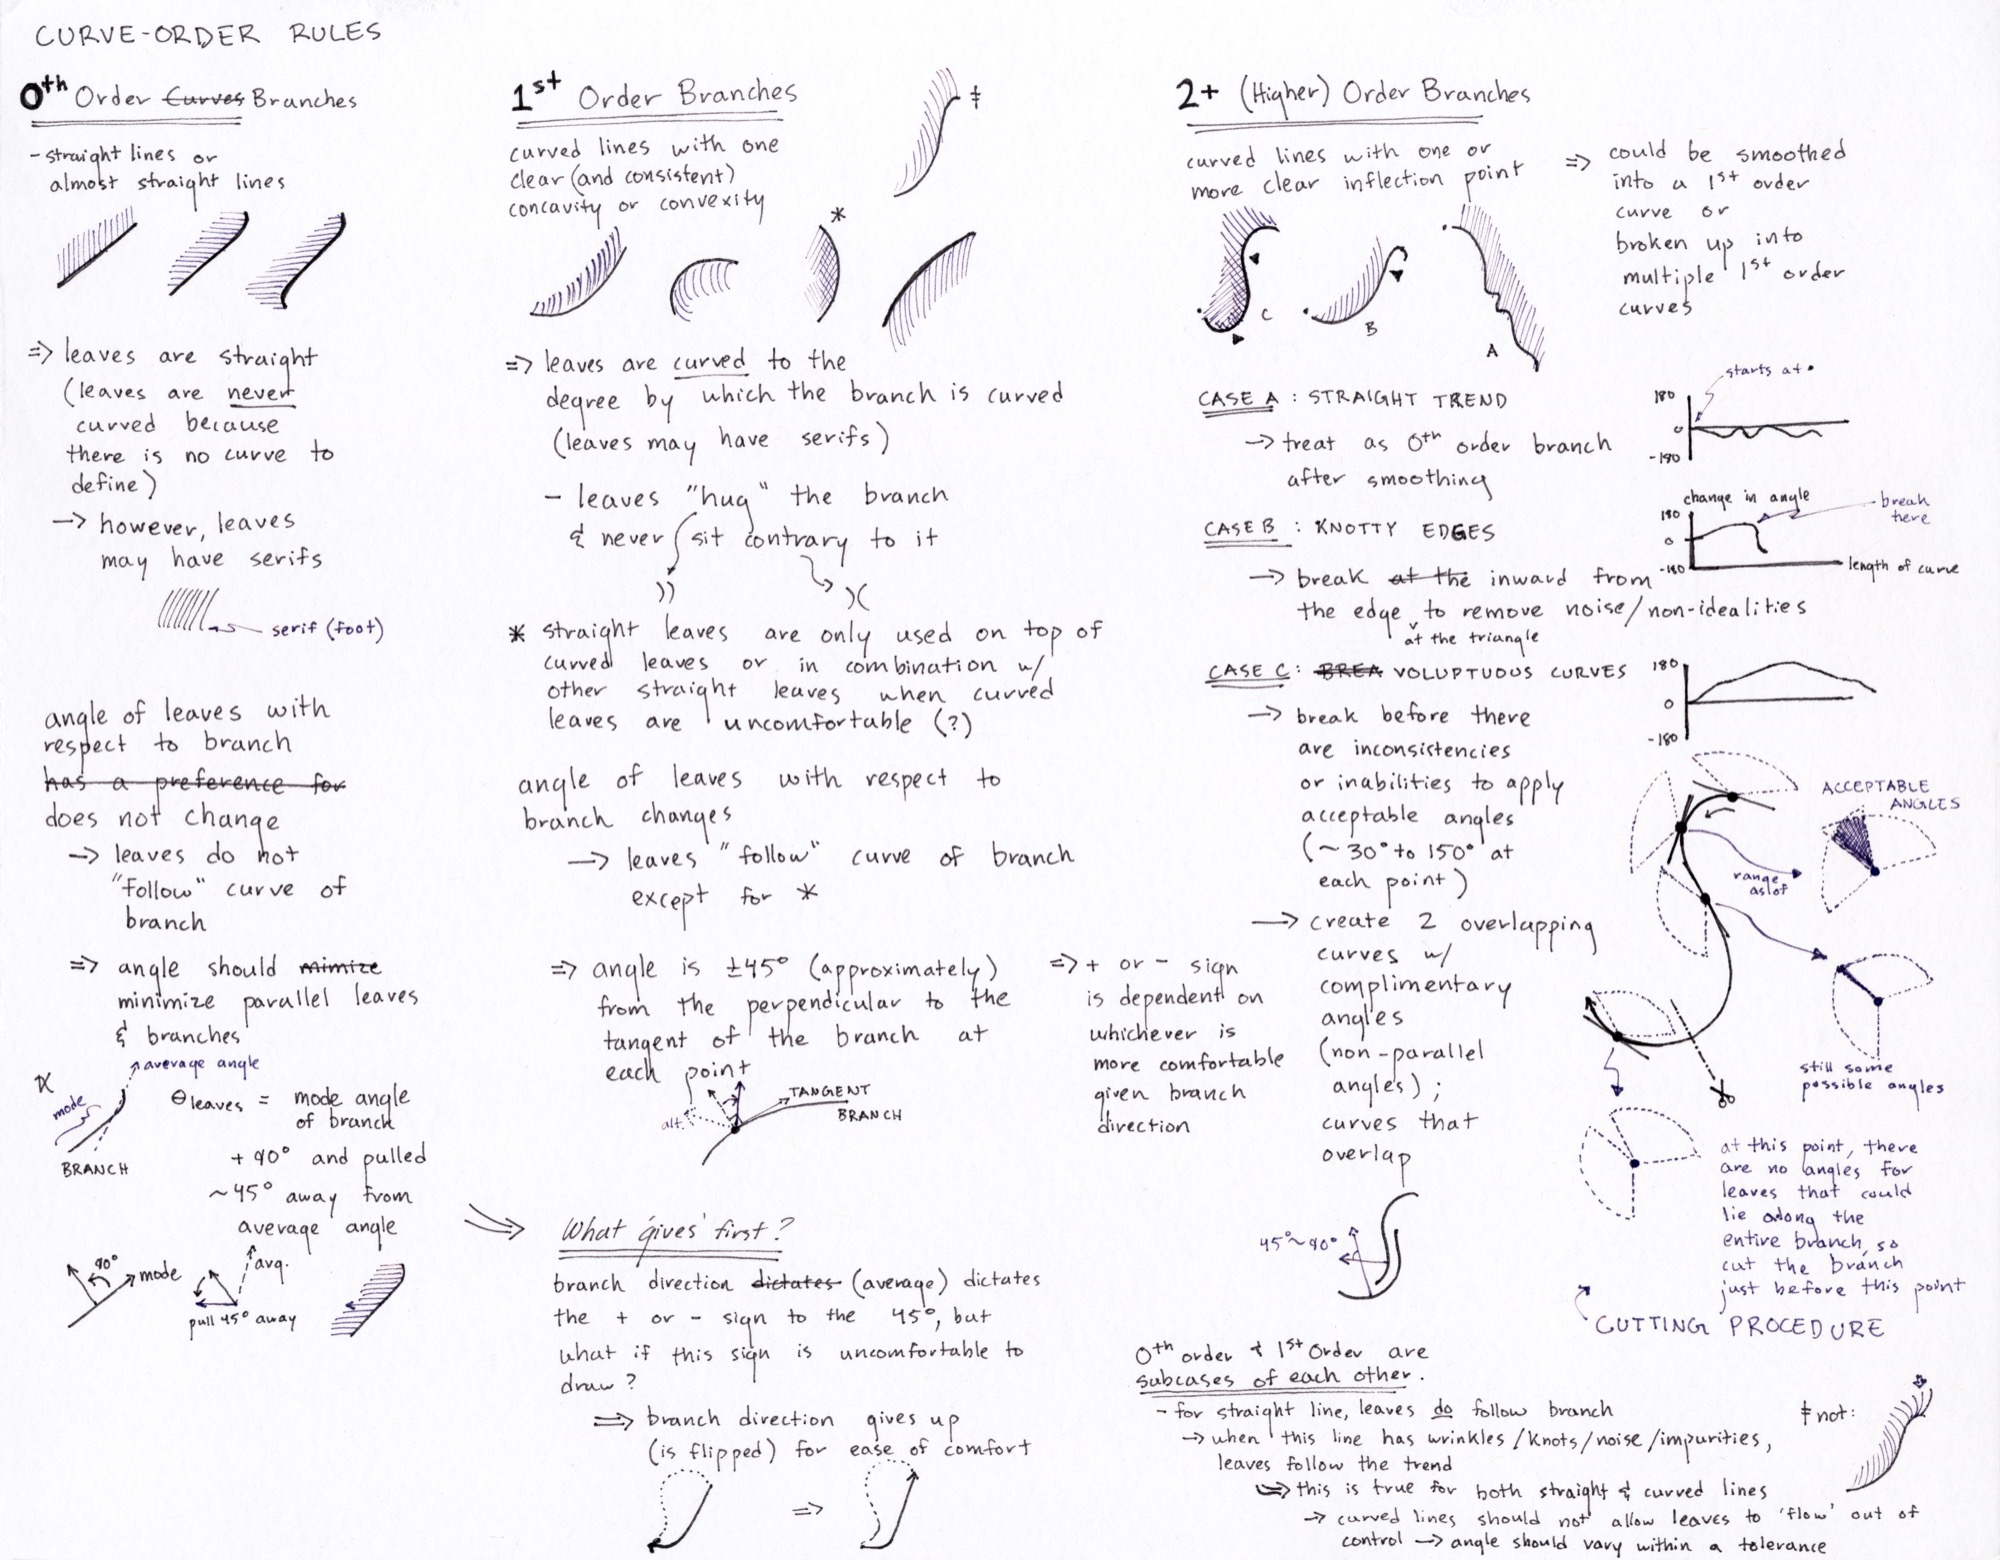 CURVE-ORDER RULES
0th Order Curves Branches
- straight lines or
almost straight lines
=> leaves are straight
(leaves are never
curved because
there is no curve to
define)
-> however, leaves
may have serifs
serif (foot)
angle of leaves with
respect to branch
has a preference for
does not change
-> leaves do not
"follow" curve of
branch
=> angle should mimize
minimize parallel leaves
& branches
average angle
mode
BRANCH
θleaves = mode angle
of branch
+ 90° and pulled
~45° away from
average angle
90°
mode
avg.
pull 45° away
1st Order Branches
‡
curved lines with one
clear (and consistent)
concavity or convexity
*
=> leaves are curved to the
degree by which the branch is curved
(leaves may have serifs)
- leaves "hug" the branch
& never sit contrary to it
)) )(
* straight leaves are only used on top of
curved leaves or in combination w/
other straight leaves when curved
leaves are uncomfortable (?)
angle of leaves with respect to
branch changes
-> leaves "follow" curve of branch
except for *
=> angle is ±45° (approximately)
from the perpendicular to the
tangent of the branch at
each point
alt.
TANGENT
BRANCH
=> + or - sign
is dependent on
whichever is
more comfortable
given branch
direction
What 'gives' first?
branch direction dictates (average) dictates
the + or - sign to the 45°, but
what if this sign is uncomfortable to
draw?
=> branch direction gives up
(is flipped) for ease of comfort
=>
2+ (Higher) Order Branches
curved lines with one or
more clear inflection point
=> could be smoothed
into a 1st order
curve or
broken up into
multiple 1st order
curves
C
B
A
CASE A : STRAIGHT TREND
-> treat as 0th order branch
after smoothing
starts at •
180
0
-180
CASE B : KNOTTY EDGES
-> break at the inward from
the edge to remove noise/non-idealities
at the triangle
change in angle
180
0
-180
break
here
length of curve
CASE C: BREA VOLUPTUOUS CURVES
-> break before there
are inconsistencies
or inabilities to apply
acceptable angles
(~30° to 150° at
each point)
-> create 2 overlapping
curves w/
complimentary
angles
(non-parallel
angles);
curves that
overlap
45°~90°
180
0
-180
ACCEPTABLE
ANGLES
range
as of
still some
possible angles
at this point, there
are no angles for
leaves that could
lie along the
entire branch, so
cut the branch
just before this point
CUTTING PROCEDURE
0th order & 1st Order are
subcases of each other.
- for straight line, leaves do follow branch
-> when this line has wrinkles/knots/noise/impurities,
leaves follow the trend
=> this is true for both straight & curved lines
-> curved lines should not allow leaves to 'flow' out of
control -> angle should vary within a tolerance
‡ not: